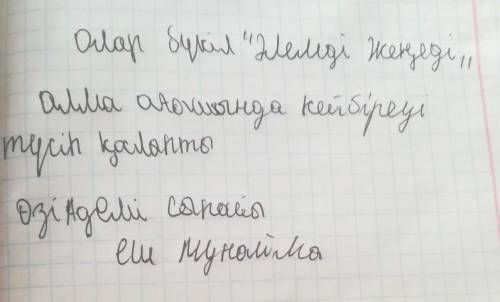 Олар бүкіл "Әлемді жеңеді"
алма ағашында кейбіреуі
түсіп қалапты
өзі Әдемі сыпайы
еш мұнайма